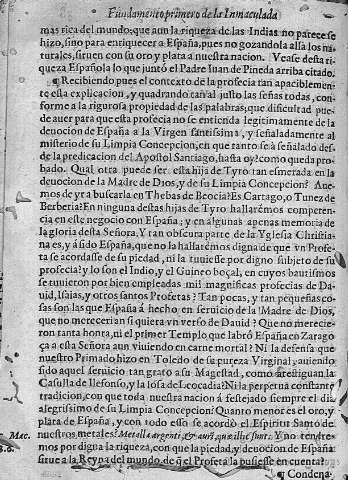 Fundamento primero de la Inmaculada
mas rica del mundo: que aun la riqueza de las Indias no parece se
hizo, sino para enriquecer a España, pues no gozandola alla los na-
turales, siruen con su oro y plata a nuestra nacion. Vease desta ri-
queza Española lo que juntó el Padre Iuan de Pineda arriba citado.
¶ Recibiendo pues el contexto de la profecia tan apaciblemen-
te esta explicacion, y quadrando tan al justo las señas todas, con-
forme a la rigurosa propiedad de las palabras; que dificultad pue-
de auer para que esta profecia no se entienda legitimamente de la
deuocion de España a la Virgen santissima, y señaladamente al
misterio de su Limpia Concepcion, en que tanto se à señalado des-
de la predicacion del Apostol Santiago, hasta oy? como queda pro-
bado. Qual otra puede ser esta hija de Tyro tan esmerada en la
deuocion de la Madre de Dios, y de su Limpia Concepcion? Aue-
mos de yr a buscarla en Thebas de Beocia? Es Cartago, o Tunez de
Berberia? En ninguna destas hijas de Tyro hallarémos competen-
cia en este negocio con España; y en algunas apenas memoria de
la gloria desta Señora. Y tan obscura parte de la Yglesia Christia-
na es, y à sido España, que no la hallarémos digna de que vn Profe-
ta se acordasse de su piedad, ni la tuuiesse por digno subjeto de su
profecia? y lo son el Indio, y el Guineo boçal, en cuyos bautismos
se tuuieron por bien empleadas mil magnificas profecias de Da-
uid, Isaias, y otros santos Profetas? Tan pocas, y tan pequeñas co-
sas son las que España à hecho en seruicio de la Madre de Dios,
que no merecerian si quiera vn verso de Dauid? Que no merecie-
ron tanta honra, ni el primer Templo que labró España en Zarago
ça a esta Señora aun viuiendo en carne mortal? Ni la defensa que
nuestro Primado hizo en Toledo de su pureza Virginal, auiendo
sido aquel seruicio tan grato a su Magestad, como atestiguan la
Casulla de Ilefonso, y la losa de Leocadia? Ni la perpetua constante
tradicion, con que toda nuestra nacion à festejado siempre el dia
alegrissimo de su Limpia Concepcion? Quanto menor es el oro, y
plata de España, y con todo esso se acordò el Espiritu Santo de
Mac. nuestros metales? Metalla argenti, & auri, quæ illic sunt. Y no tendre-
8. mos por digna la riqueza, con que la piedad, y deuocion de España
sirue a la Reyna del mundo, de q̃ el Profeta la pusiesse en cuenta?
¶ Condena